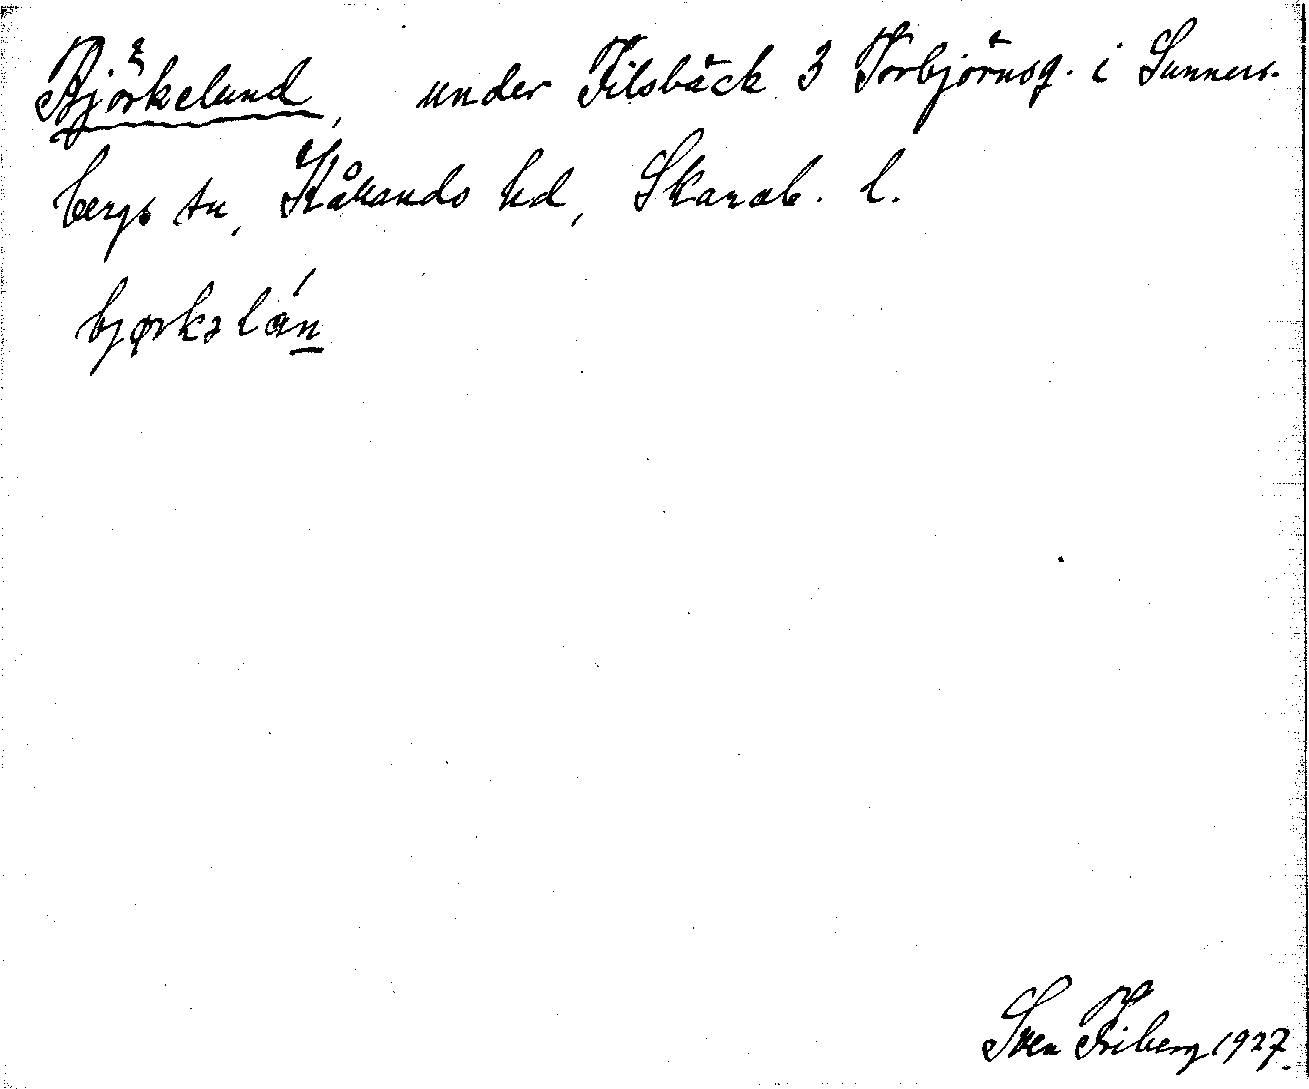 Björkelund, under Filsbäck 3 Torbjörnsg. i Sunners-
bergs sn, Kållands hd, Skarab. l.
bjørkəlán
Sven Friberg 1927.